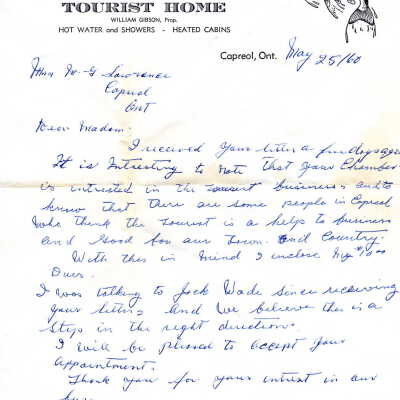 TOURIST HOME
WILLIAM GIBSON, Prop.
HOT WATER and SHOWERS - HEATED CABINS
Capreol, Ont. May 25/60
Mrs W G Lawrence
Capreol
Ont
Dear Madam:
I received your letter a few days ago
It is Interesting to note that your Chamber
is intrested in the tourist business and to
know that there are some people in Capreol
who think the tourist is a help to business
and Good for our Town. and Country.
With this in mind I inclose my $10.00
Dues.
I was talking to Jack Wade since receiving
your letter, and we believe this is a
step in the right direction.
I will be pleased to accept your
appointment.
Thank you for your intrest in our